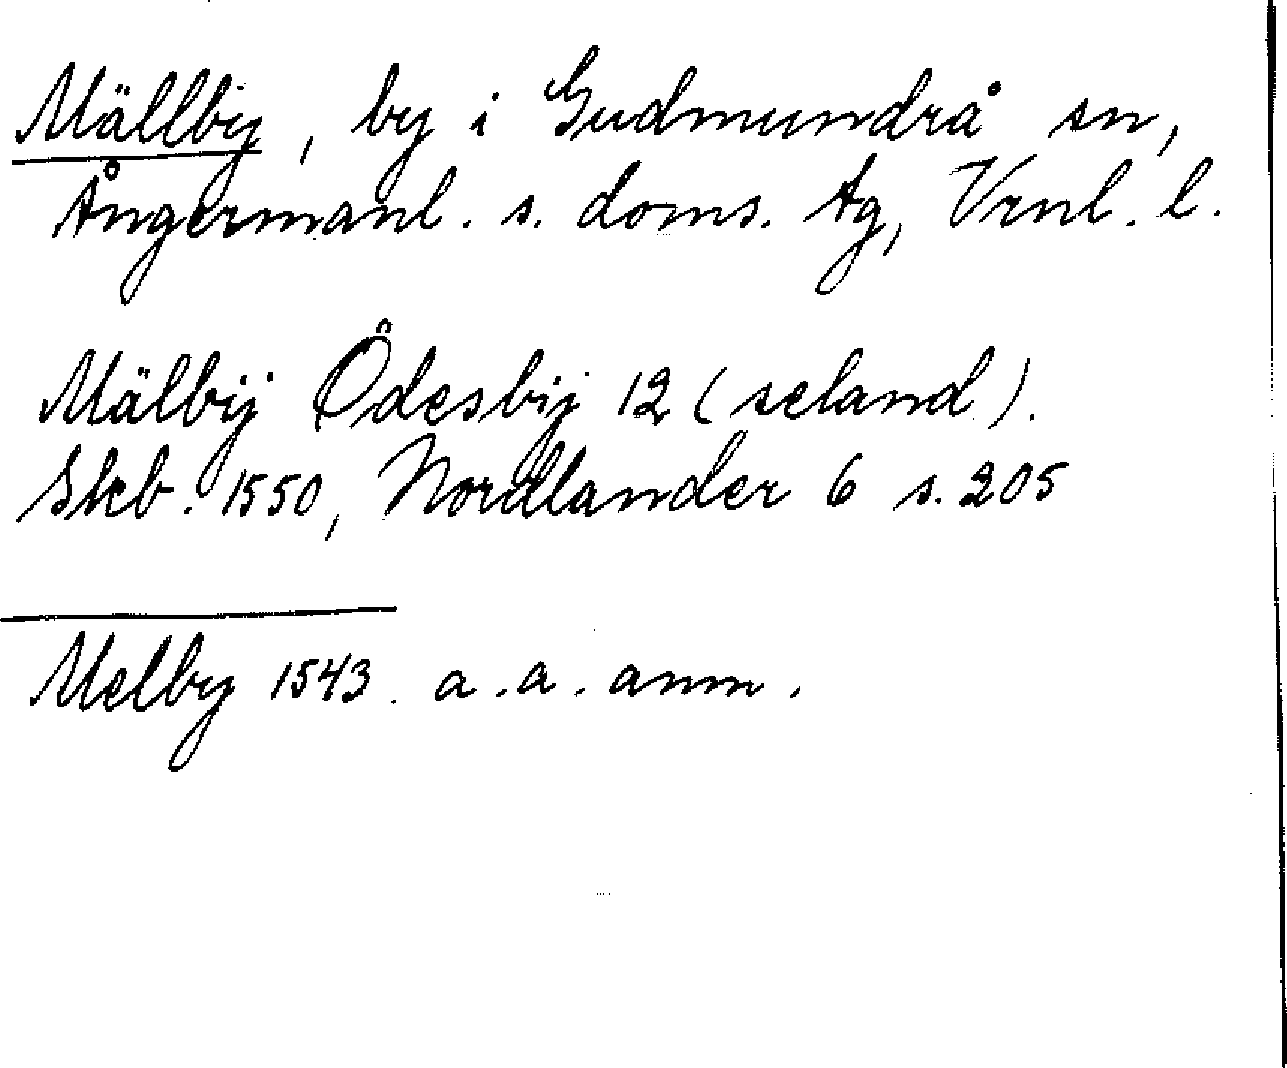 Mällby, by i Gudmundrå sn,
Ångermanl. s. doms. tg, Vrnl. l.
Mälbÿ Ödesbij 12 (seland).
Skb. 1550, Nordlander 6 s. 205
Melby 1543. a. a. anm.